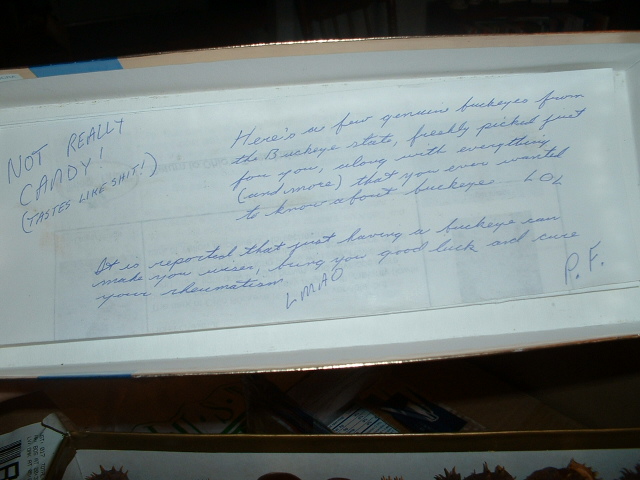 NOT REALLY
CANDY!
(TASTES LIKE SHIT!)
Here's a few genuine buckeyes from
the Buckeye state, freshly picked just
for you, along with everything
(and more) that you ever wanted
to know about buckeyes LOL
It is reported that just having a buckeye can
make you wiser, bring you good luck and cure
your rheumatism.
LMAO
P.F.